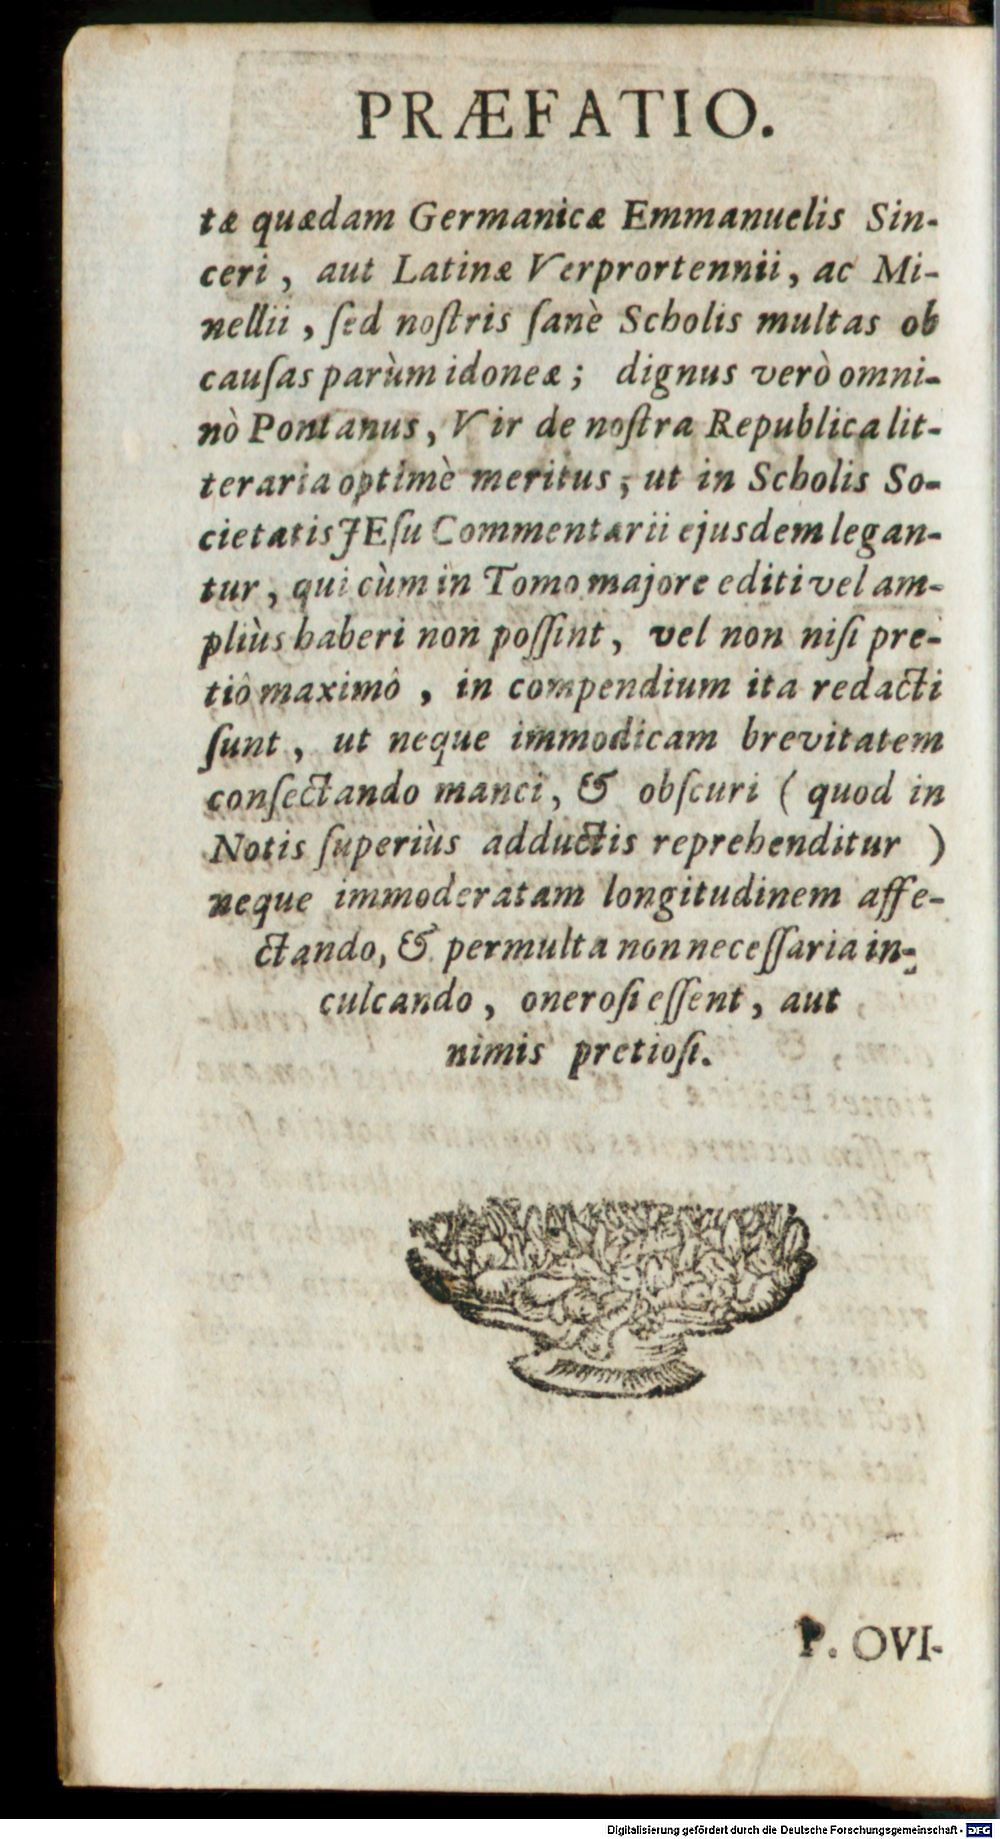 PRÆFATIO.
tæ quædam Germanicæ Emmanuelis Sin-
ceri, aut Latinæ Verprortennii, ac Mi-
nellii, ſed noſtris ſanè Scholis multas ob
cauſas parùm idoneæ; dignus verò omni-
nò Pontanus, Vir de noſtra Republica lit-
teraria optimè meritus, ut in Scholis So-
cietatis JEſu Commentarii ejusdem legan-
tur, qui cùm in Tomo majore editi vel am-
pliùs haberi non poſſint, vel non niſi pre-
tiô maximô, in compendium ita redacti
ſunt, ut neque immodicam brevitatem
conſectando manci, & obſcuri (quod in
Notis ſuperiùs adductis reprehenditur)
neque immoderatam longitudinem affe-
ctando, & permulta non neceſſaria in-
culcando, oneroſi eſſent, aut
nimis pretioſi.
P. OVI-
Digitalisierung gefördert durch die Deutsche Forschungsgemeinschaft - DFG